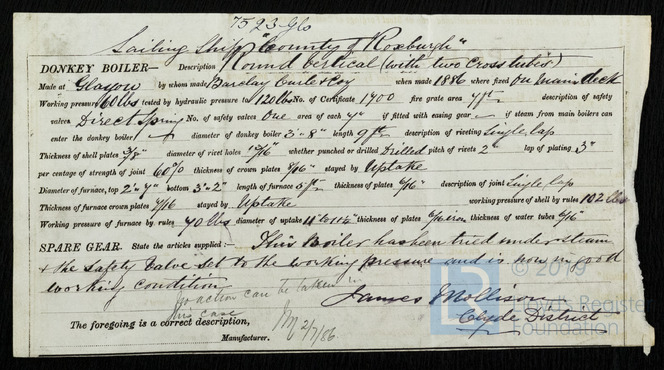 7523 Gls
Sailing Ship "County of Roxburgh"
DONKEY BOILER— Description Round Vertical (with two Cross tubes)
Made at Glasgow by whom made Barclay Curle & Coy when made 1886 where fixed On Main deck
Working pressure 60 lbs tested by hydraulic pressure to 120 lbs No. of Certificate 1700 fire grate area 7 ft description of safety
valves Direct Spring No. of safety valves One area of each 7" if fitted with easing gear — if steam from main boilers can
enter the donkey boiler diameter of donkey boiler 3'-8" length 9 ft description of riveting Single Lap
Thickness of shell plates 3/8" diameter of rivet holes 10/16" whether punched or drilled Drilled pitch of rivets 2" lap of plating 3"
per centage of strength of joint 60% thickness of crown plates 8/16" stayed by Uptake
Diameter of furnace, top 2'-7" bottom 3'-2" length of furnace 5 ft thickness of plates 6/16" description of joint Single Lap
Thickness of furnace crown plates 7/16 stayed by Uptake working pressure of shell by rules 102 lbs
Working pressure of furnace by rules 70 lbs diameter of uptake 11 to 11½ thickness of plates 6/16 iron thickness of water tubes 6/16"
SPARE GEAR. State the articles supplied:— This Boiler has been tried under steam
& the safety valve set to the working pressure and is now in good
working condition
no action can be taken in
this case
James Mollison
Clyde District
The foregoing is a correct description,
Manufacturer. 2/7/86
© 2019
Lloyd's Register
Foundation